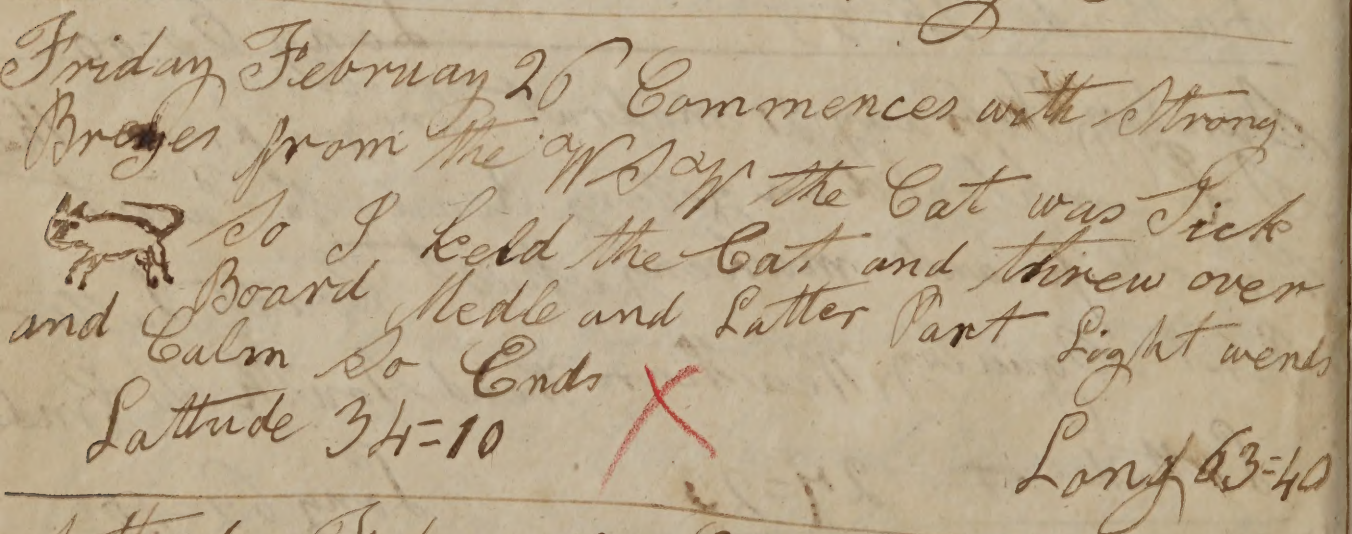 Friday February 26 Commences with Strong
Brezes from the WSW the Cat was Sick
So I keld the Cat and threw over
Board Medle and Latter Part Light wends
and Calm So Ends
Lattude 34=10 Long 63=40